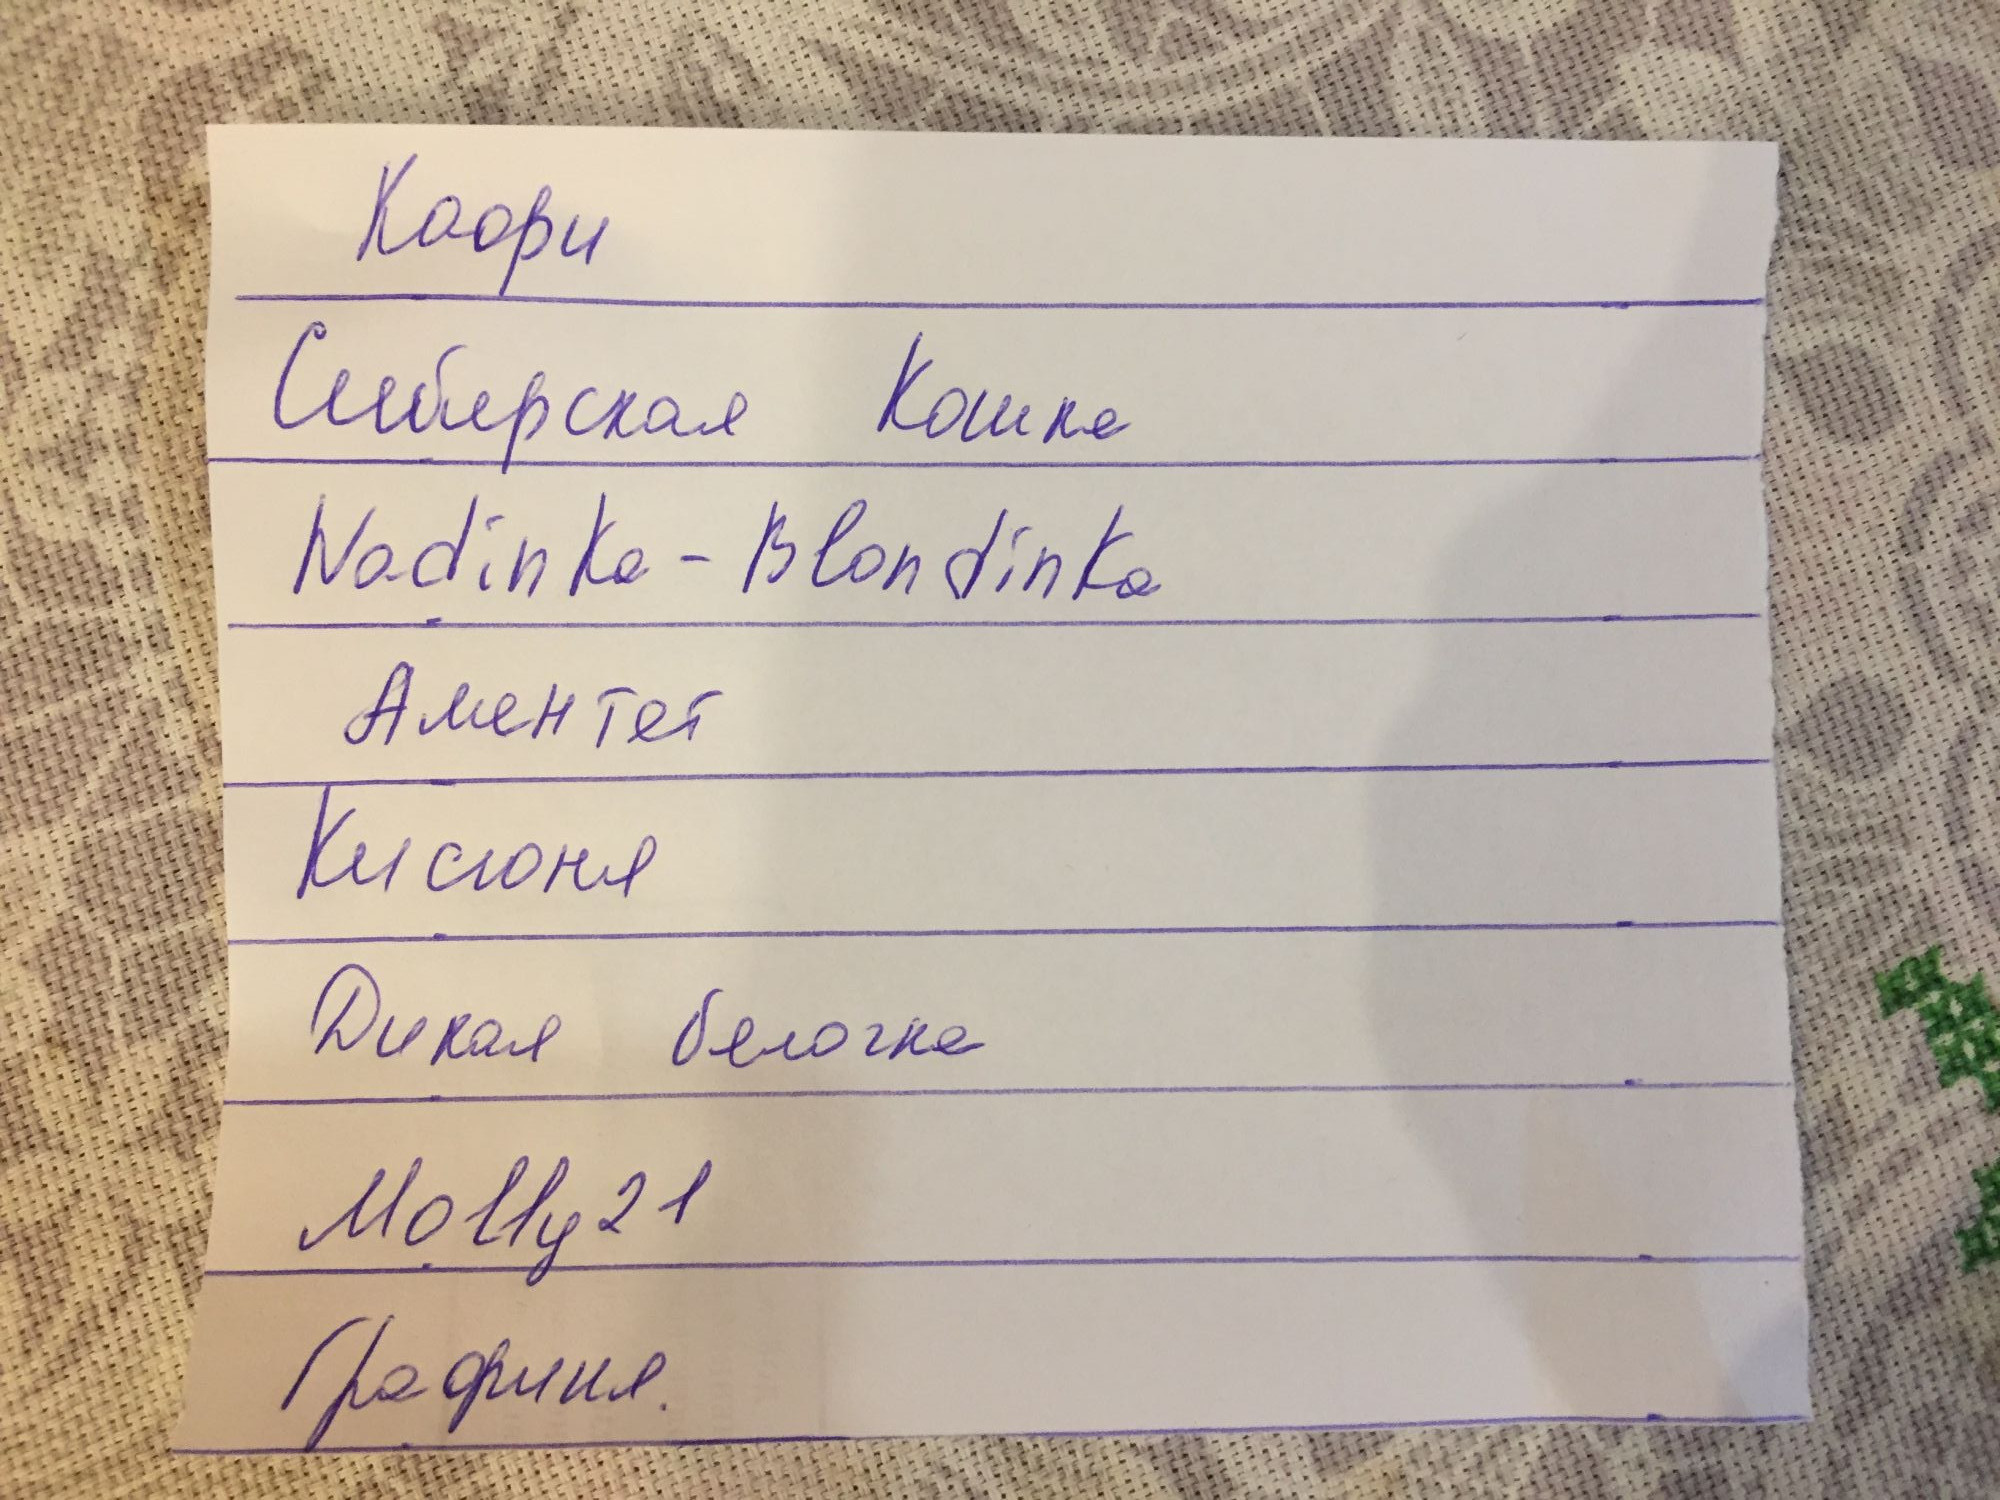 Каори
Сибирская Кошка
Nadinka-Blondinka
Аментет
Кисюня
Дикая белочка
Molly21
Графиня.